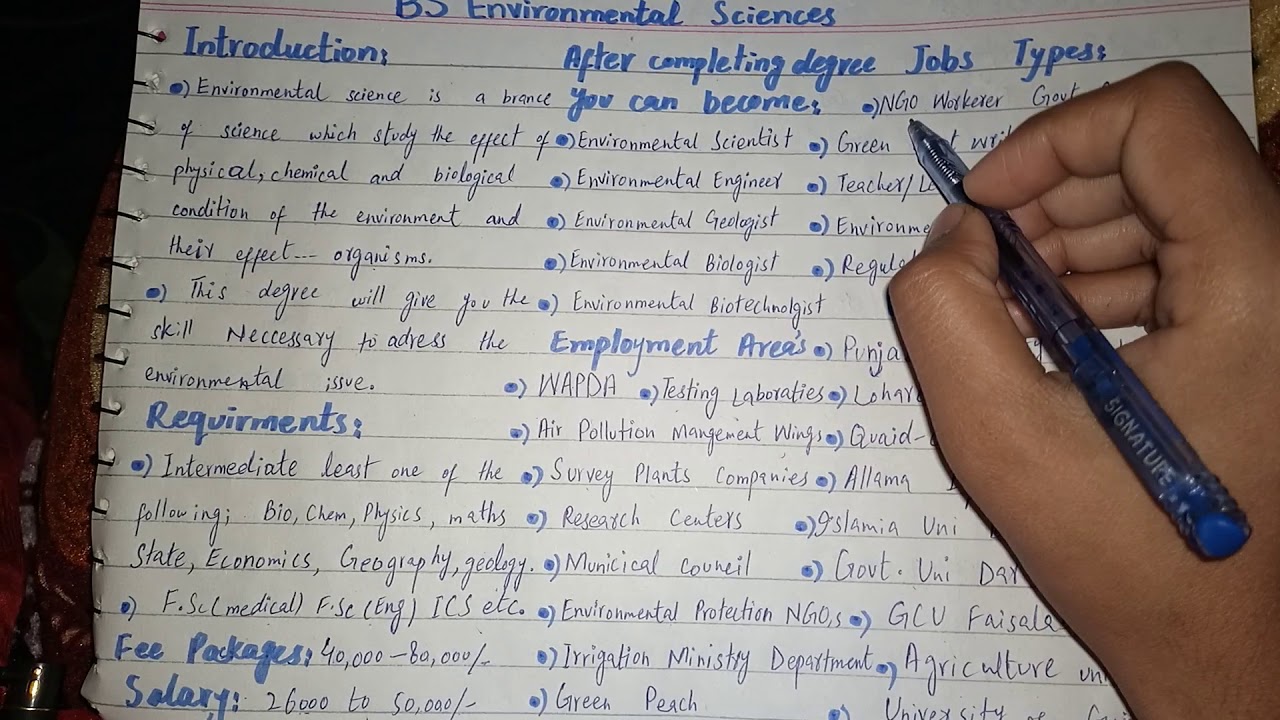 BS Environmental Sciences
Introduction:
•) Environmental science is a brance
of science which study the effect of
physical, chemical and biological
condition of the environment and
their effect--- organisms.
•) This degree will give you the
skill Neccessary to adress the
environmental issue.
Requirments:
•) Intermediate least one of the
following; Bio, Chem, Physics, maths
State, Economics, Geography, geology.
•) F.Sc (medical) F.Sc (Eng) ICS etc.
Fee Packages: 40,000 – 80,000/-
Salary: 26000 to 50,000/-
After completing degree
You can become:
•) Environmental Scientist
•) Environmental Engineer
•) Environmental Geologist
•) Environmental Biologist
•) Environmental Biotechnolgist
Employment Area's
•) WAPDA •) Testing Laboraties
•) Air Pollution Mangement Wings
•) Survey Plants Companies
•) Research Centers
•) Municical Council
•) Environmental Protection NGO,s
•) Irrigation Ministry Department
•) Green Peach
Jobs Types:
•) NGO Workerer Govt
•) Green
•) Teacher/
•)
•)
•)
•)
•) Quaid-
•) Allama
•) Islamia Uni
•) Govt. Uni
•) GCU
•) Agriculture
•) University of
SIGNATURE